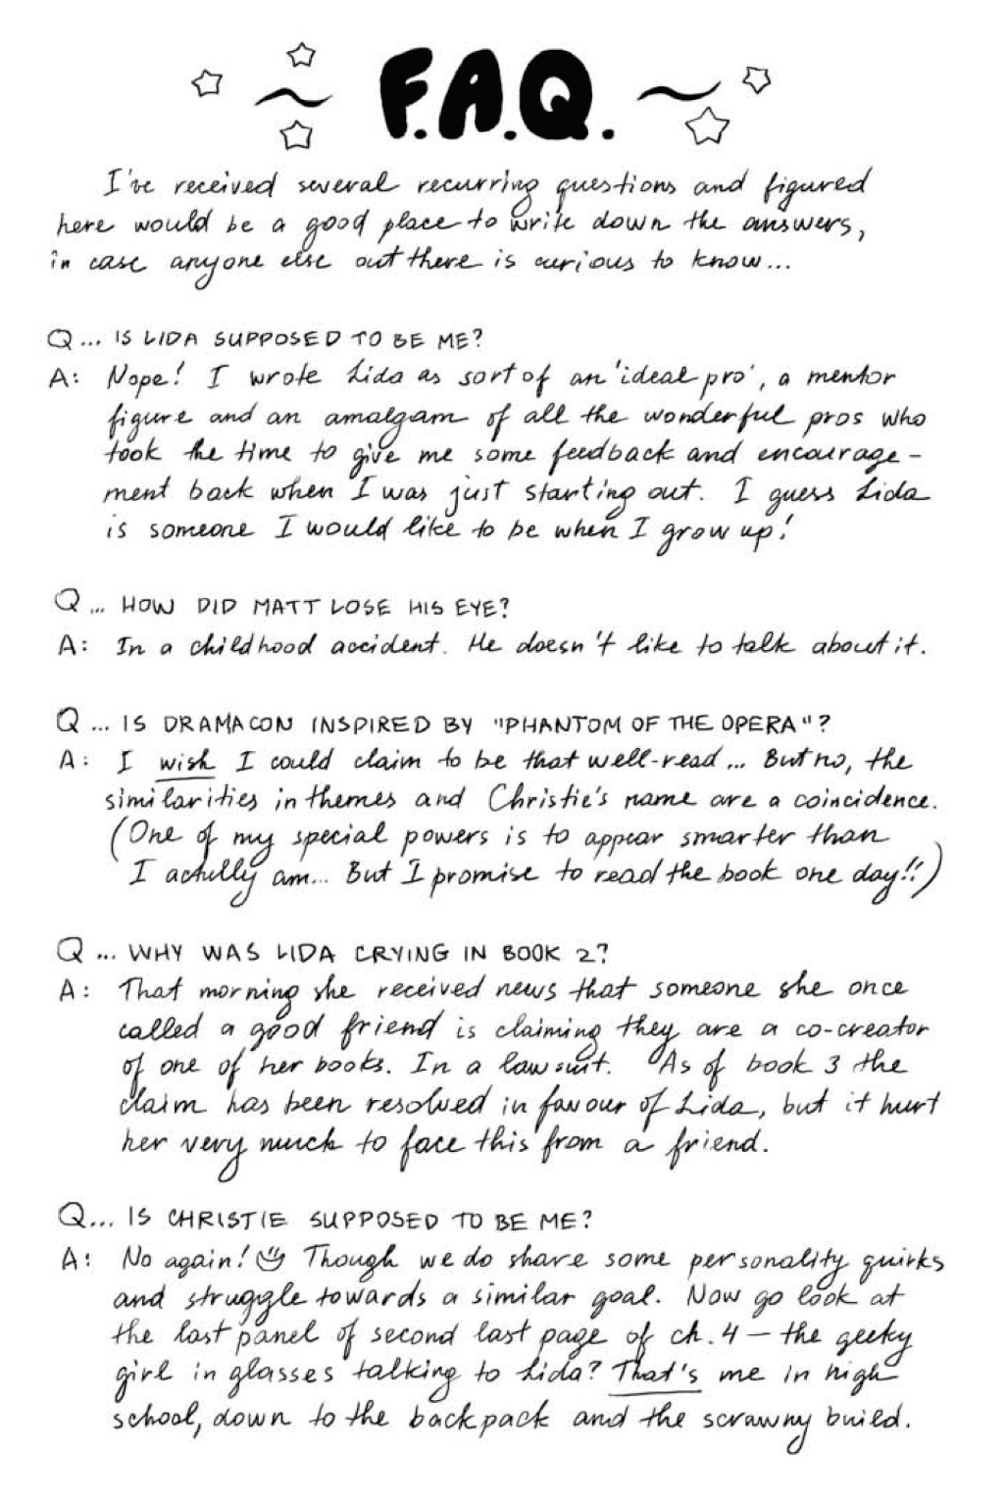 F.A.Q.
I've received several recurring questions and figured
here would be a good place to write down the answers,
in case anyone else out there is curious to know...
Q... IS LIDA SUPPOSED TO BE ME?
A: Nope! I wrote Lida as sort of an 'ideal pro', a mentor
figure and an amalgam of all the wonderful pros who
took the time to give me some feedback and encourage-
ment back when I was just starting out. I guess Lida
is someone I would like to be when I grow up!
Q... HOW DID MATT LOSE HIS EYE?
A: In a childhood accident. He doesn't like to talk about it.
Q... IS DRAMACON INSPIRED BY "PHANTOM OF THE OPERA"?
A: I wish I could claim to be that well-read... But no, the
similarities in themes and Christie's name are a coincidence.
(One of my special powers is to appear smarter than
I actully am... But I promise to read the book one day!!)
Q... WHY WAS LIDA CRYING IN BOOK 2?
A: That morning she received news that someone she once
called a good friend is claiming they are a co-creator
of one of her books. In a lawsuit. As of book 3 the
claim has been resolved in favour of Lida, but it hurt
her very much to face this from a friend.
Q... IS CHRISTIE SUPPOSED TO BE ME?
A: No again! Though we do share some personality quirks
and struggle towards a similar goal. Now go look at
the last panel of second last page of ch. 4 – the geeky
girl in glasses talking to Lida? That's me in high
school, down to the backpack and the scrawny build.